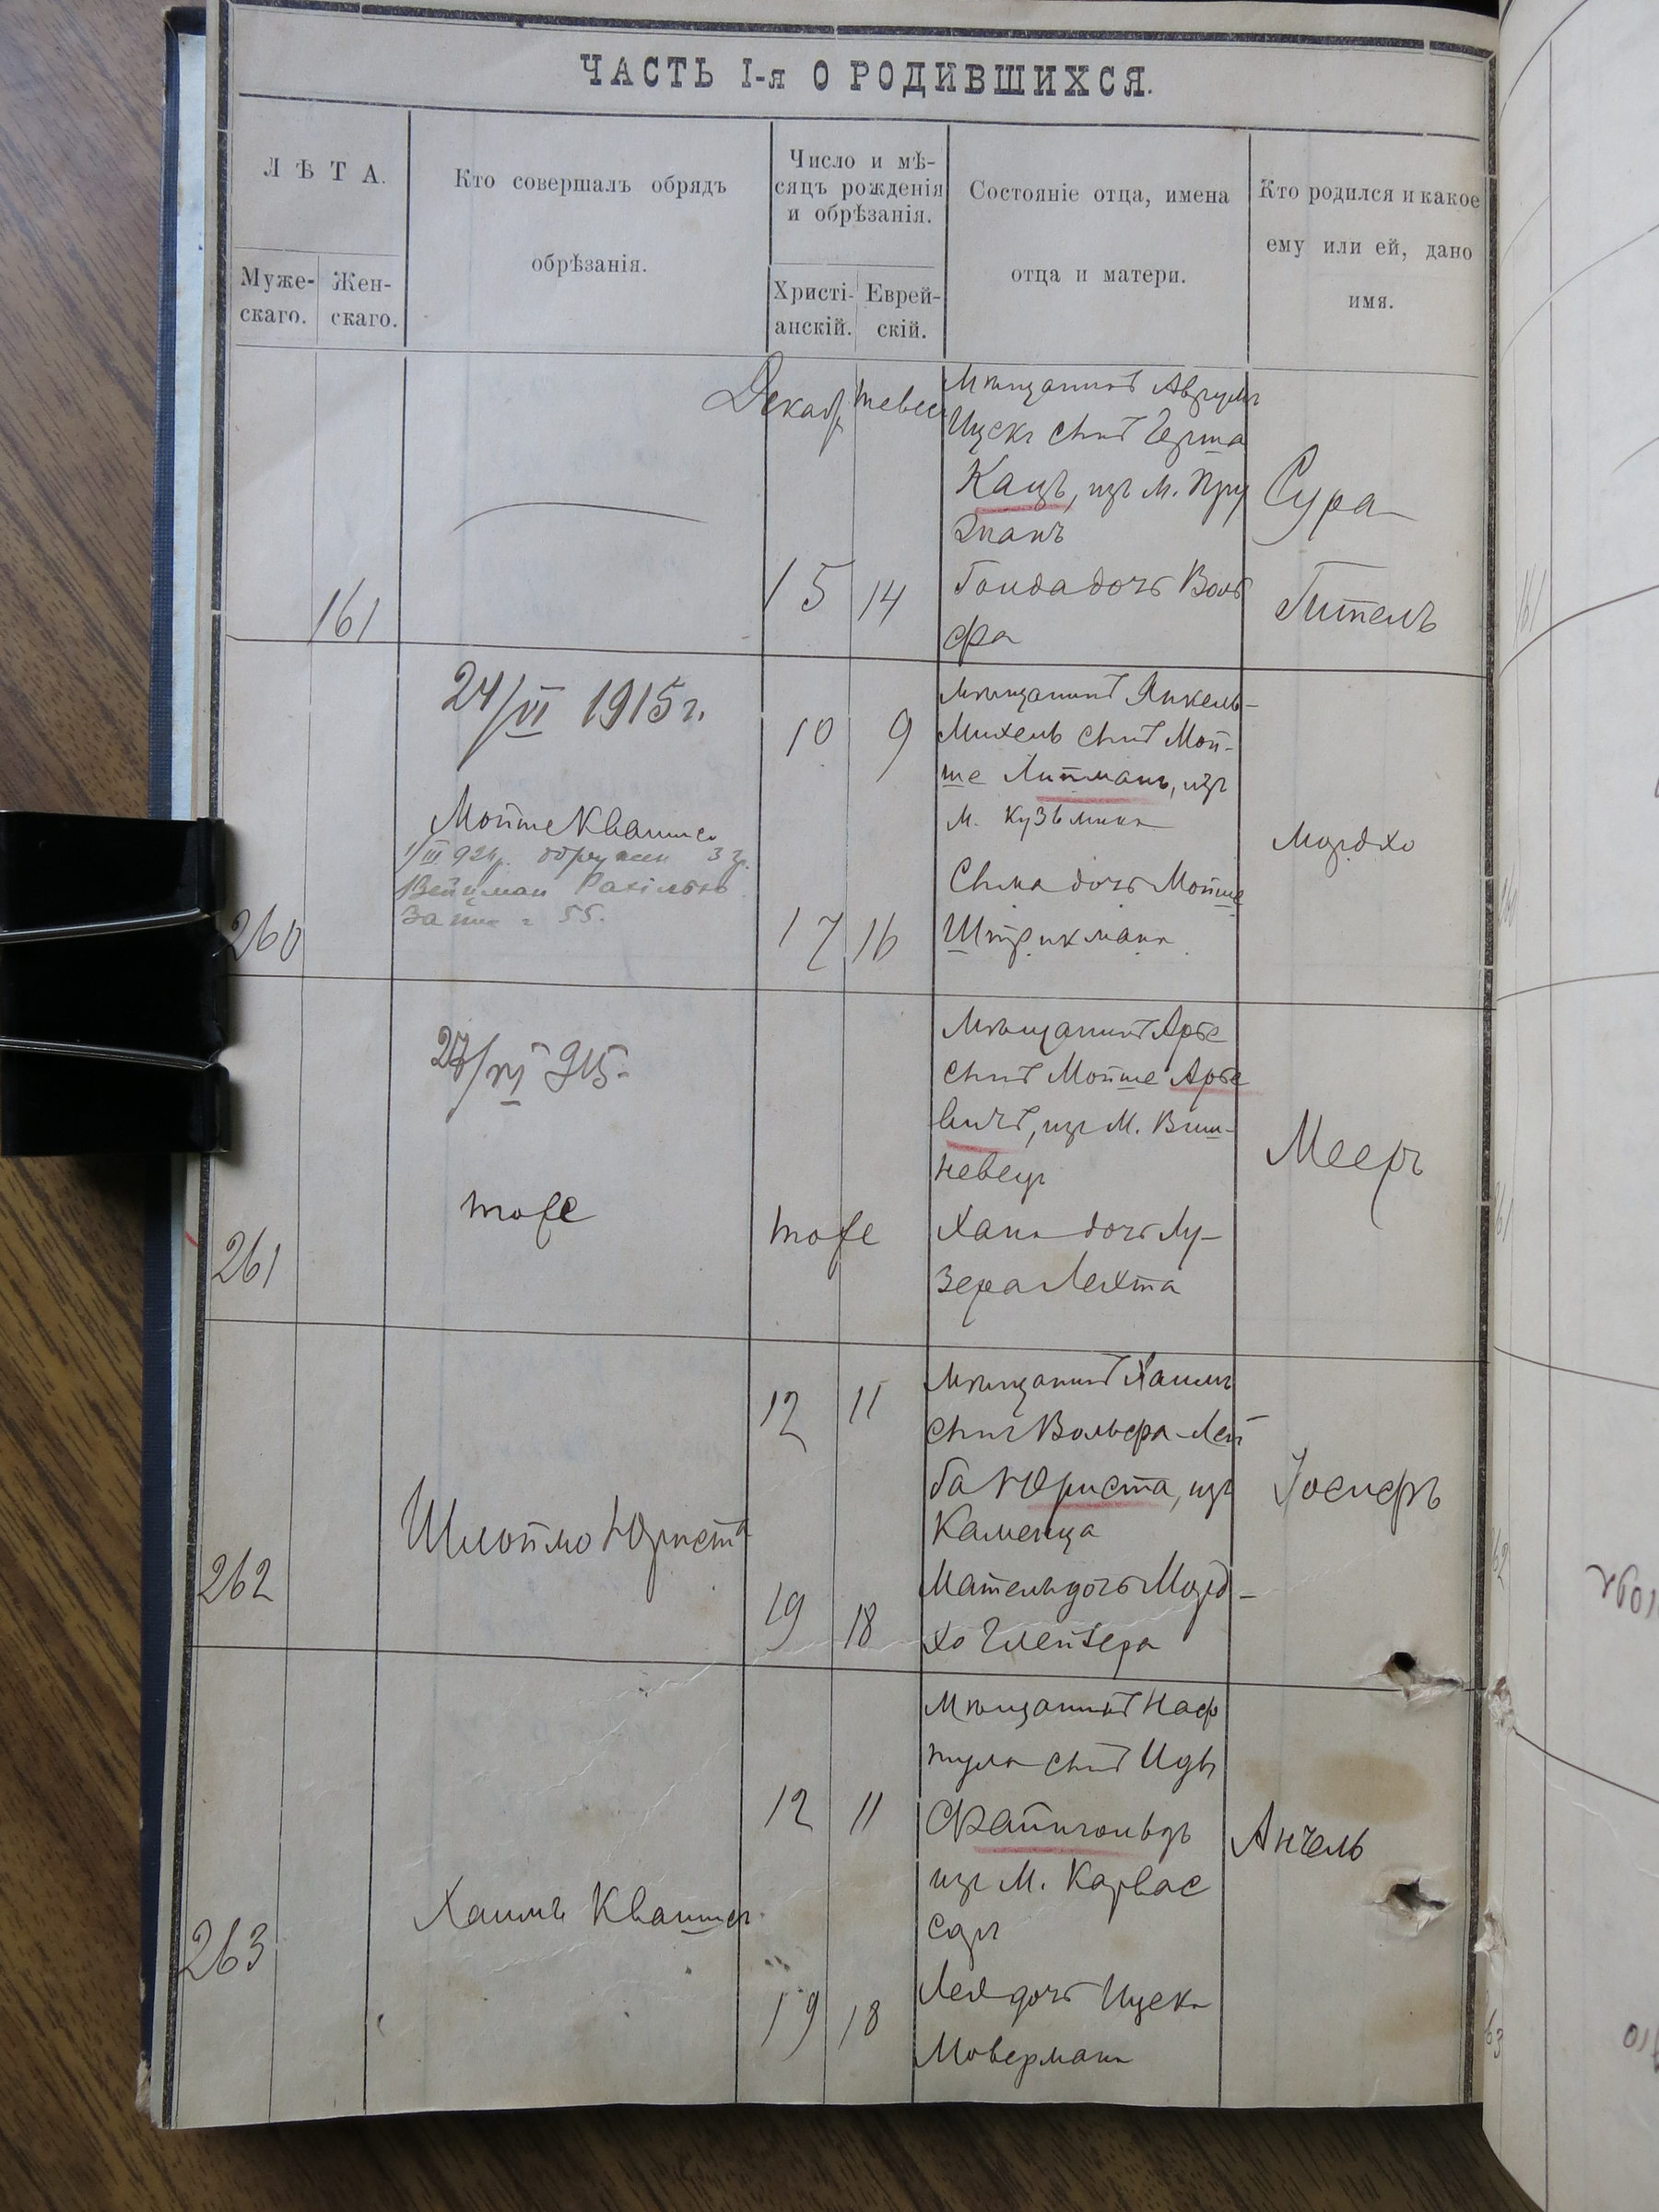 ЧАСТЬ I-я О РОДИВШИХСЯ.
ЛѢТА.
Муже-
скаго.
Жен-
скаго.
Кто совершалъ обрядъ
обрѣзанія.
Число и мѣ-
сяцъ рожденія
и обрѣзанія.
Христі-
анскій.
Еврей-
скій.
Состояніе отца, имена
отца и матери.
Кто родился и какое
ему или ей, дано
имя.
161
Декаб
тевес
15
14
Мѣщанинъ Аврумъ
Ицекъ сынъ Герша
Кацъ, изъ м. Пру
жанъ
Голда дочь Воль
фа
Сура
Гитель
260
24/VI 1915 г.
Мойше Квашис
1/III 924 р. одружен з гр.
Вейцман Рахілью
За № 55.
10
9
17
16
Мѣщанинъ Янкель-
Михель сынъ Мой-
ше Липманъ, изъ
м. Кузьмина
Сыма дочь Мойше
Штрихмана
Мордхо
261
27/VI 915
тоже
тоже
Мѣщанинъ Арье
сынъ Мойше Арье
вичъ, изъ м. Виш-
невецъ
Хана дочь Лу-
зера Лехта
Мееръ
262
Шлоймо Юриста
12
11
19
18
Мѣщанинъ Хаимъ
сынъ Вольфа-Лей
ба Юриста, изъ
Каменца
Матель дочь Морд-
хо Глейзера
Іосифъ
263
Хаимъ Квашис
12
11
19
18
Мѣщанинъ Наф
тула сынъ Идъ
Файнгольдъ
изъ м. Карвас
саръ
Лея дочь Ицека
Мовермана
Анчель